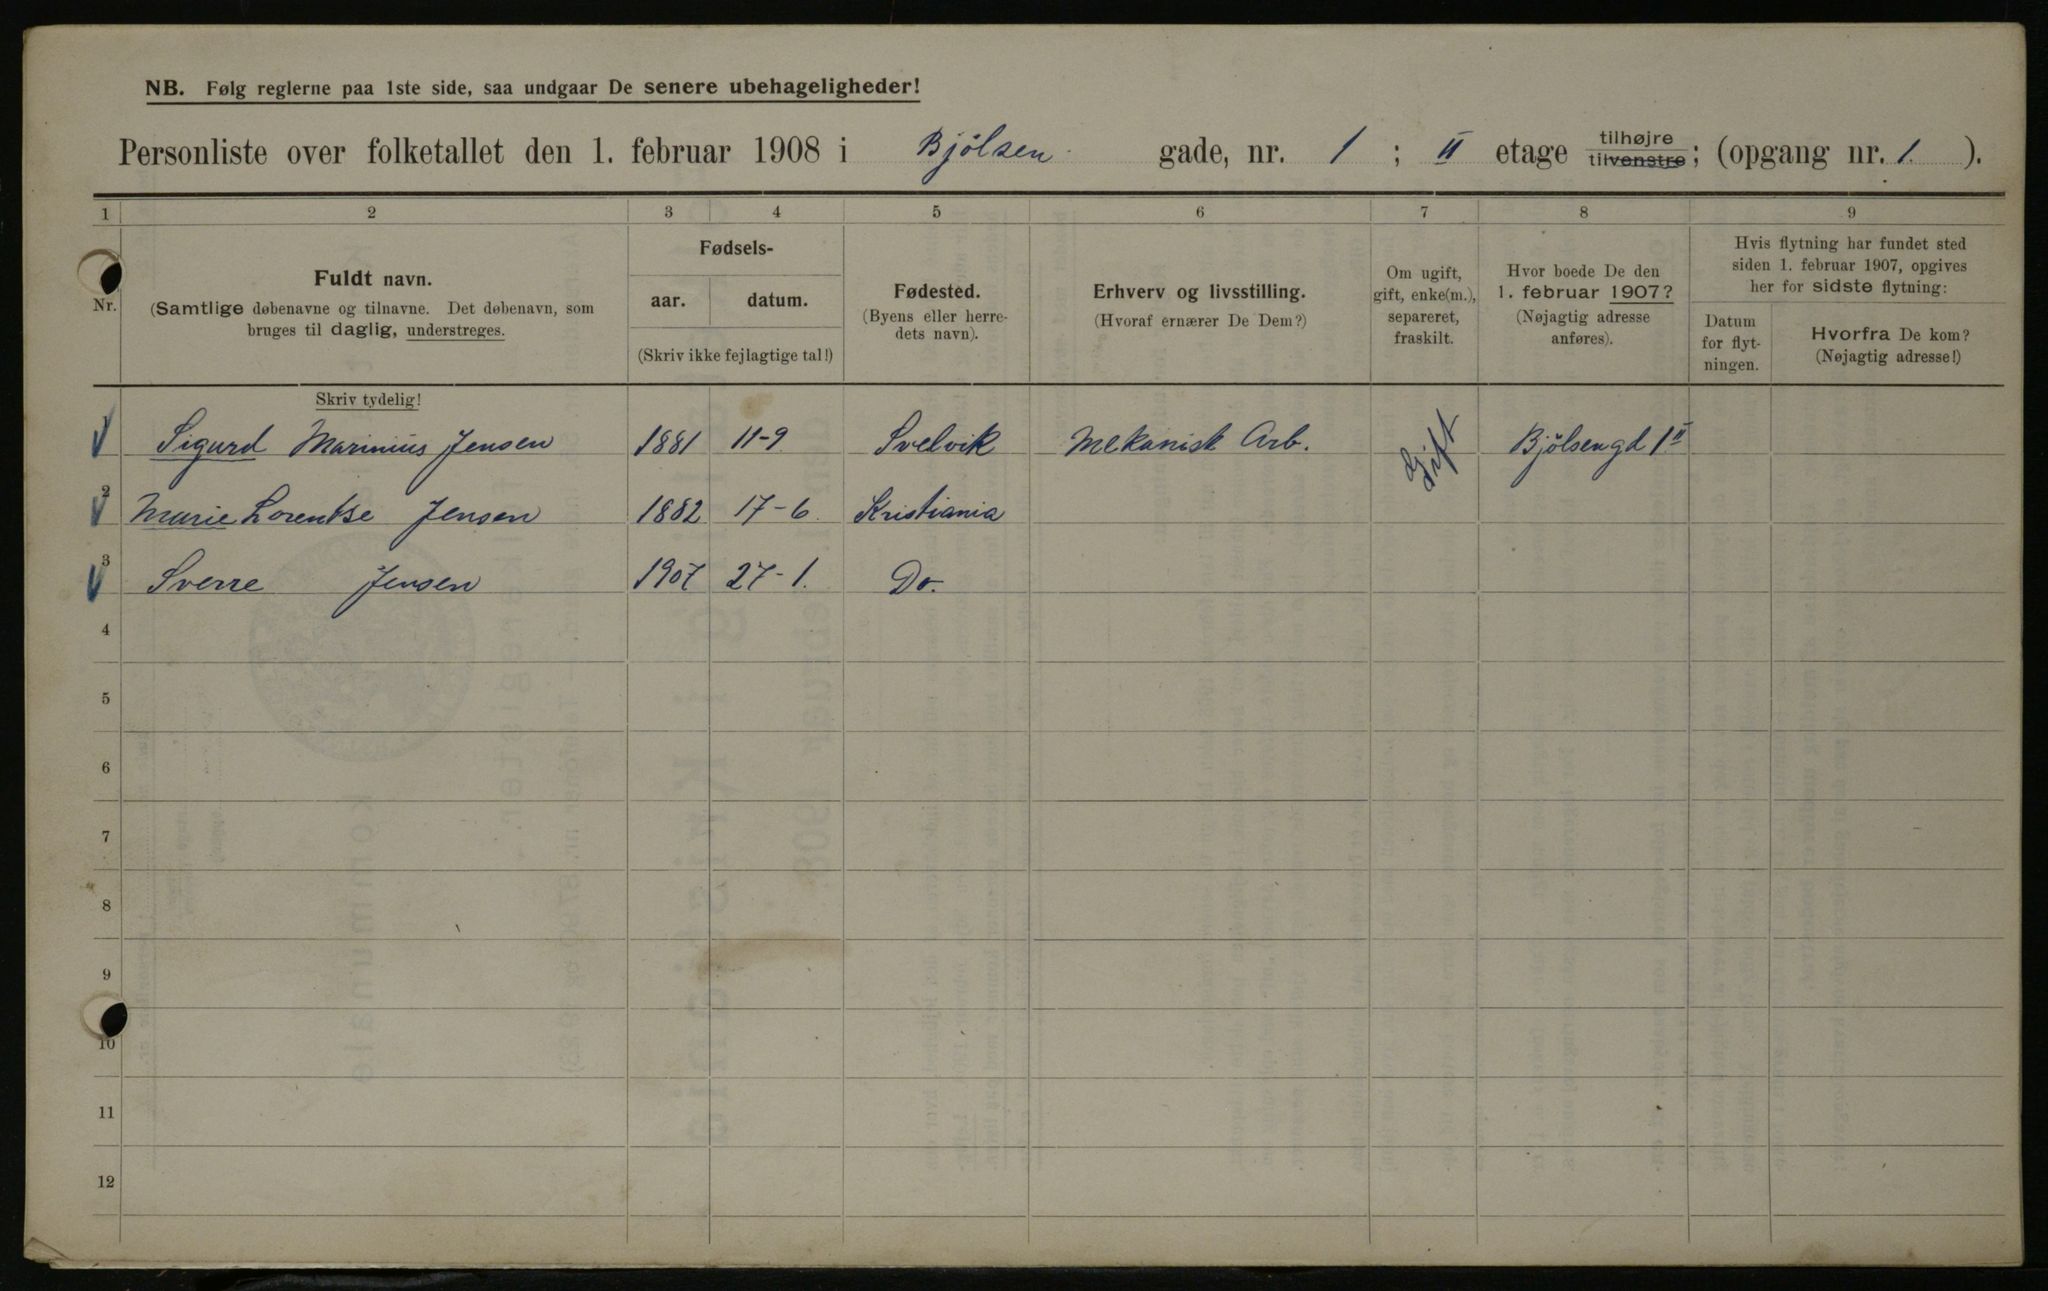 NB. Følg reglerne paa 1ste side, saa undgaar De senere ubehageligheder!
Personliste over folketallet den 1. februar 1908 i Bjölsen gade, nr. 1 ; II etage tilhøjre tilvenstre; (opgang nr. 1. ).
1 2 3 4 5 6 7 8 9
Nr.
Fuldt navn.
(Samtlige døbenavne og tilnavne. Det døbenavn, som
bruges til daglig, understreges.
Fødsels-
aar. datum.
(Skriv ikke fejlagtige tal!)
Fødested.
(Byens eller herre-
dets navn).
Erhverv og livsstilling.
(Hvoraf ernærer De Dem?)
Om ugift,
gift, enke(m.),
separeret,
fraskilt.
Hvor boede De den
1. februar 1907?
(Nøjagtig adresse
anføres).
Hvis flytning har fundet sted
siden 1. februar 1907, opgives
her for sidste flytning:
Datum
for flyt-
ningen.
Hvorfra De kom?
(Nøjagtig adresse!)
Skriv tydelig!
1 Sigurd Marinius Jensen 1881 11-9 Svelvik Mekanisk Arb. Gift Bjölsengd 1 II
2 Marie Lorentse Jensen 1882 17-6. Kristiania
3 Sverre Jensen 1907 27-1. Do.
4
5
6
7
8
9
10
11
12